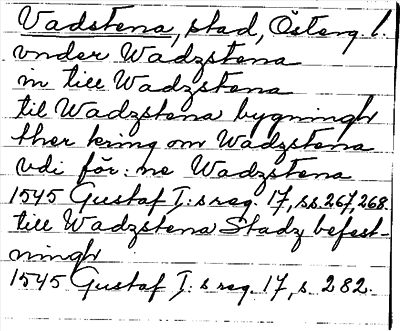 Vadstena, stad, Österg. l.
vnder Wadzstena
in till Wadzstena
til Wadzstena bygningh
ther kring om Wadzstena
vdi för: ne Wadzstena
1545 Gustaf I: s reg. 17, ss. 267, 268.
till Wadzstena Stadz befest-
ningh
1545 Gustaf I: s reg. 17, s. 282.